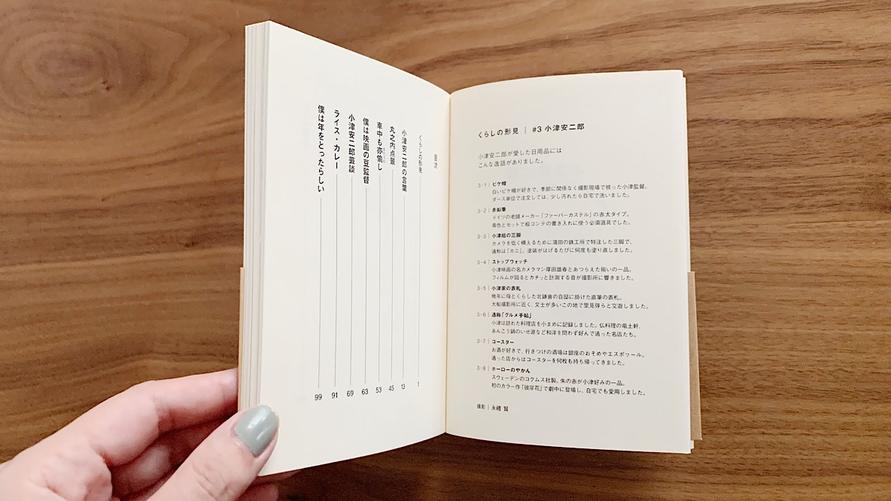 目次
くらしの形見 1
小津安二郎の言葉 13
丸之内点景 45
車中も亦愉し 53
僕は映画の豆監督 63
小津安二郎芸談 69
ライス・カレー 91
僕は年をとったらしい 99
くらしの形見 | #3 小津安二郎
小津安二郎が愛した日用品には
こんな逸話がありました。
3-1 | ピケ帽
白いピケ帽が好きで、季節に関係なく撮影現場で被った小津監督。
ダース単位で注文しては、少し汚れたら自宅で洗いました。
3-2 | 赤鉛筆
ドイツの老舗メーカー「ファーバーカステル」の赤太タイプ。
青色とセットで絵コンテの書き入れに使う必需道具でした。
3-3 | 小津組の三脚
カメラを低く構えるために蒲田の鉄工所で特注した三脚で、
通称は「カニ」。塗装がはげるたびに何度も塗り直しました。
3-4 | ストップウォッチ
小津映画の名カメラマン厚田雄春とあつらえた揃いの一品。
フィルムが回るとカチッと計測する音が撮影所に響きました。
3-5 | 小津家の表札
晩年に母とくらした北鎌倉の自邸に掛けた直筆の表札。
大船撮影所に近く、文士が多いこの地で里見弴らと交遊しました。
3-6 | 通称「グルメ手帖」
小津は訪れた料理店を小まめに記録しました。仏料理の竜土軒、
あんこう鍋のいせ源など和洋を問わず好んで通った名店たち。
3-7 | コースター
お酒が好きで、行きつけの酒場は銀座のおそめやエスポワール。
通った店からはコースターを何枚も持ち帰ってきました。
3-8 | ホーローのやかん
スウェーデンのコクムス社製。朱の赤が小津好みの一品。
初のカラー作「彼岸花」で劇中に登場し、自宅でも愛用しました。
撮影 | 永禮 賢